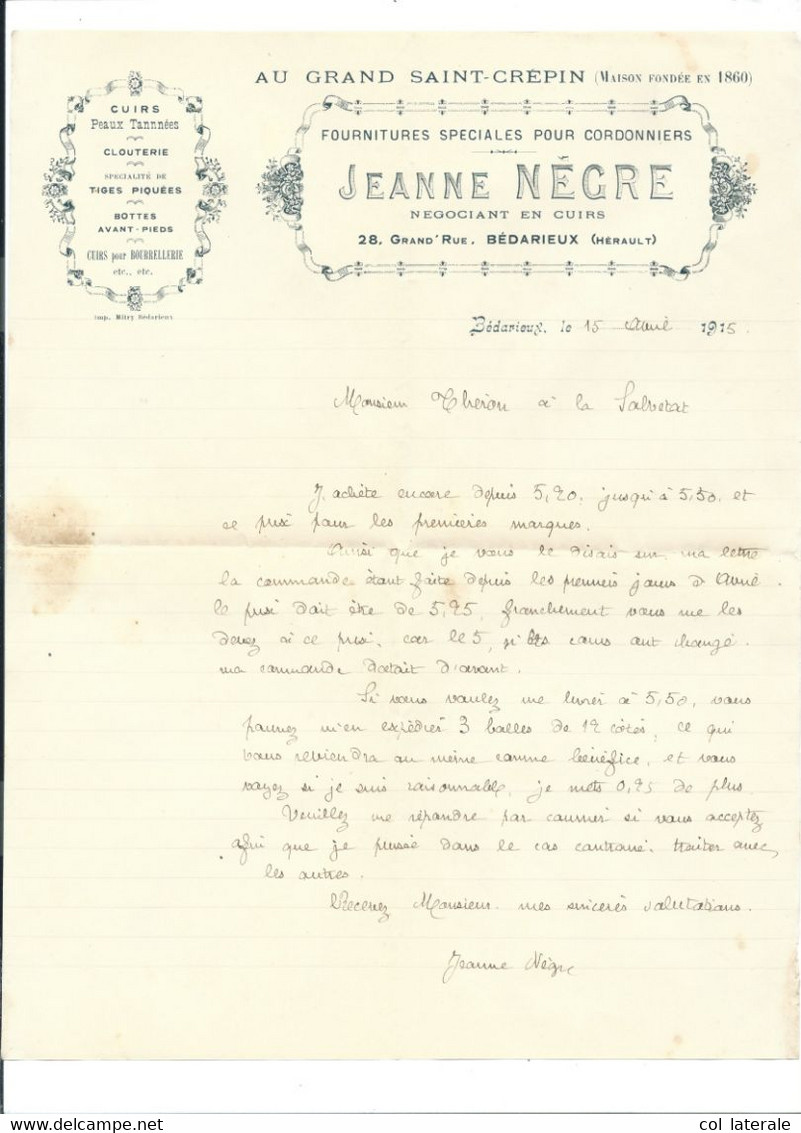 AU GRAND SAINT-CRÉPIN (MAISON FONDÉE EN 1860)
CUIRS
Peaux Tannnées
CLOUTERIE
SPÉCIALITÉ DE
TIGES PIQUÉES
BOTTES
AVANT-PIEDS
CUIRS pour BOURRELLERIE
etc., etc.
Imp. Mitry Bédarieux
FOURNITURES SPECIALES POUR CORDONNIERS
JEANNE NÈGRE
NEGOCIANT EN CUIRS
28, GRAND'RUE, BÉDARIEUX (HÉRAULT)
Bédarieux, le 15 Avril 1915
Monsieur Théron à la Salvetat
J'achète encore depuis 5,20, jusqu'à 5,50, et
ce prix pour les premières marques.
Ainsi que je vous le disais sur ma lettre
la commande étant faite depuis les premiers jours d'Avril
le prix doit être de 5,25, franchement vous me les
devez à ce prix, car le 5, si les cours ont changé
ma commande datait d'avant.
Si vous voulez me livrer à 5,50, vous
pouvez m'en expédier 3 balles de 12 côtés, ce qui
vous reviendra au même comme bénéfice, et vous
voyez si je suis raisonnable, je mets 0,25 de plus
Veuillez me répondre par courrier si vous acceptez
afin que je puisse dans le cas contraire traiter avec
les autres.
Recevez Monsieur mes sincères salutations.
Jeanne Nègre
col laterale